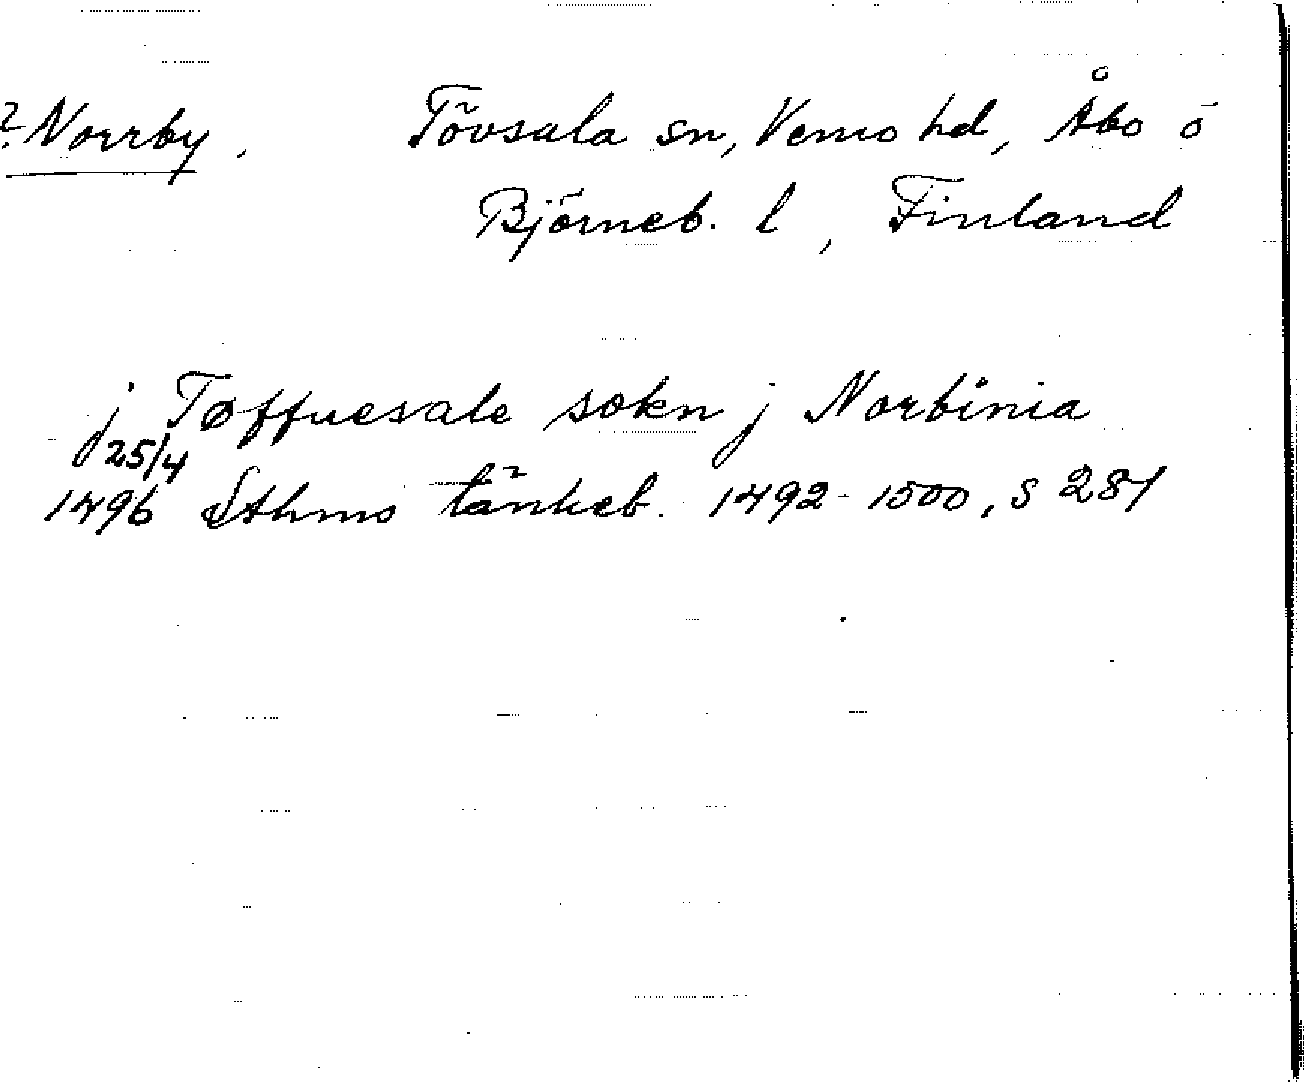 ? Norrby, Tövsala sn, Vemo hd, Åbo o
Björneb. l, Finland
j Tøffuesale sokn j Norbinia
25/4
1496 Sthms tänkeb. 1492-1500, s 281